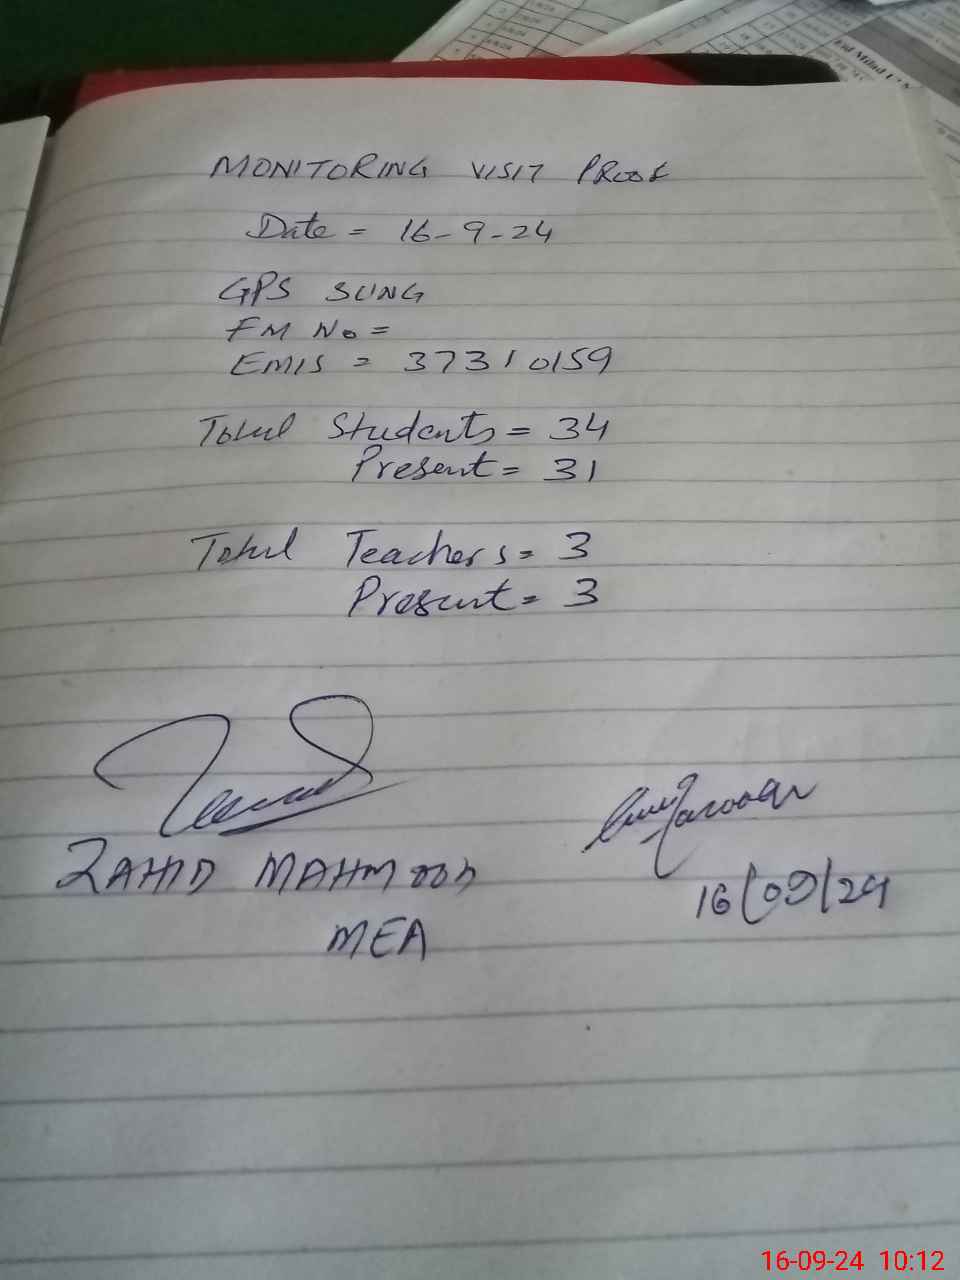 MONITORING VISIT PROOF
Date = 16-9-24
GPS SUNG
FM No =
EMIS = 37310159
Total Students = 34
Present = 31
Total Teachers = 3
Present = 3
ZAHID MAHMOOD
MEA
16/09/24
16-09-24 10:12